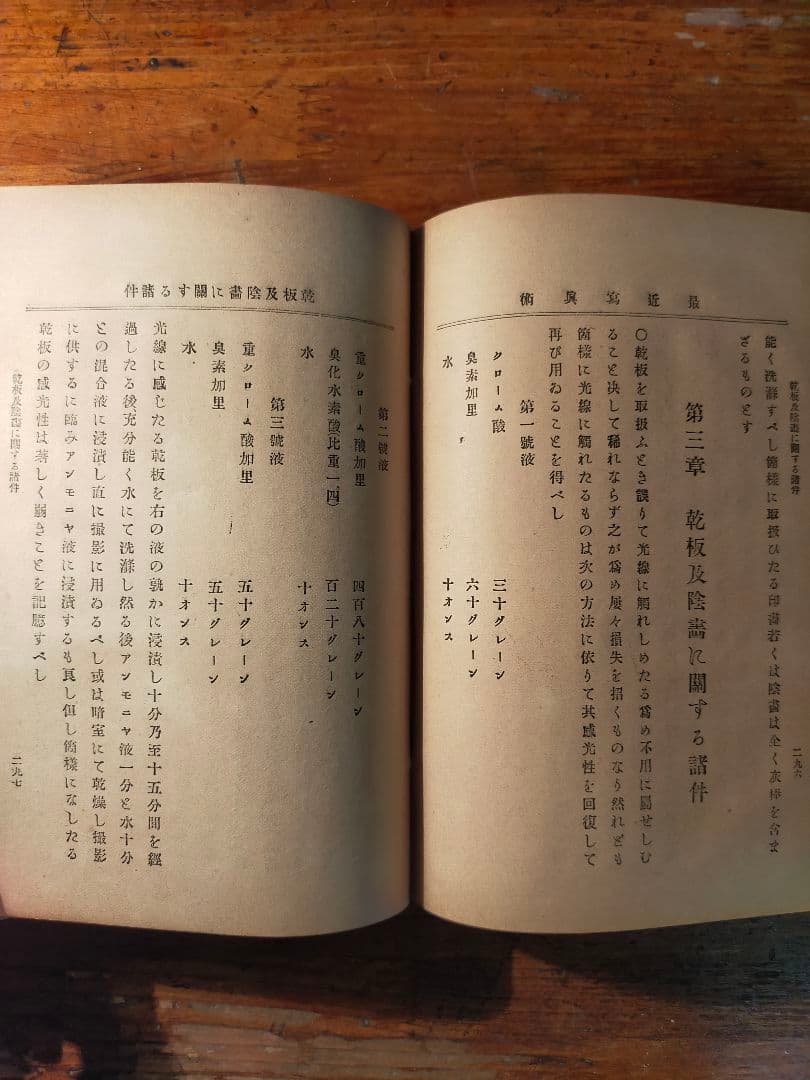 最近寫眞術
乾板及陰畫に關する諸件
二九六
能く洗滌すべし斯樣に取扱ひたる印畫若くは陰畫は全く灰樺を含ま
ざるものとす
第三章 乾板及陰畫に關する諸件
〇乾板を取扱ふとき誤りて光線に觸れしめたる爲め不用に屬せしむ
ること决して稀れならず之が爲め屡々損失を招くものなり然れども
斯樣に光線に觸れたるものは次の方法に依りて其感光性を回復して
再び用ゐることを得べし
第一號液
クローム酸 三十グレーン
臭素加里 六十グレーン
水 十オンス
乾板及陰畫に關する諸件
第二號液
重クローム酸加里 四百八十グレーン
臭化水素酸(比重一四) 百二十グレーン
水 十オンス
第三號液
重クローム酸加里 五十グレーン
臭素加里 五十グレーン
水 十オンス
光線に感じたる乾板を右の液の孰かに浸漬し十分乃至十五分間を經
過したる後充分能く水にて洗滌し然る後アンモニヤ液一分と水十分
との混合液に浸漬し直に撮影に用ゐるべし或は暗室にて乾燥し撮影
に供するに臨みアンモニヤ液に浸漬するも良し但し斯樣になしたる
乾板の感光性は著しく弱きことを記臆すべし
乾板及陰畫に關する諸件
二九七